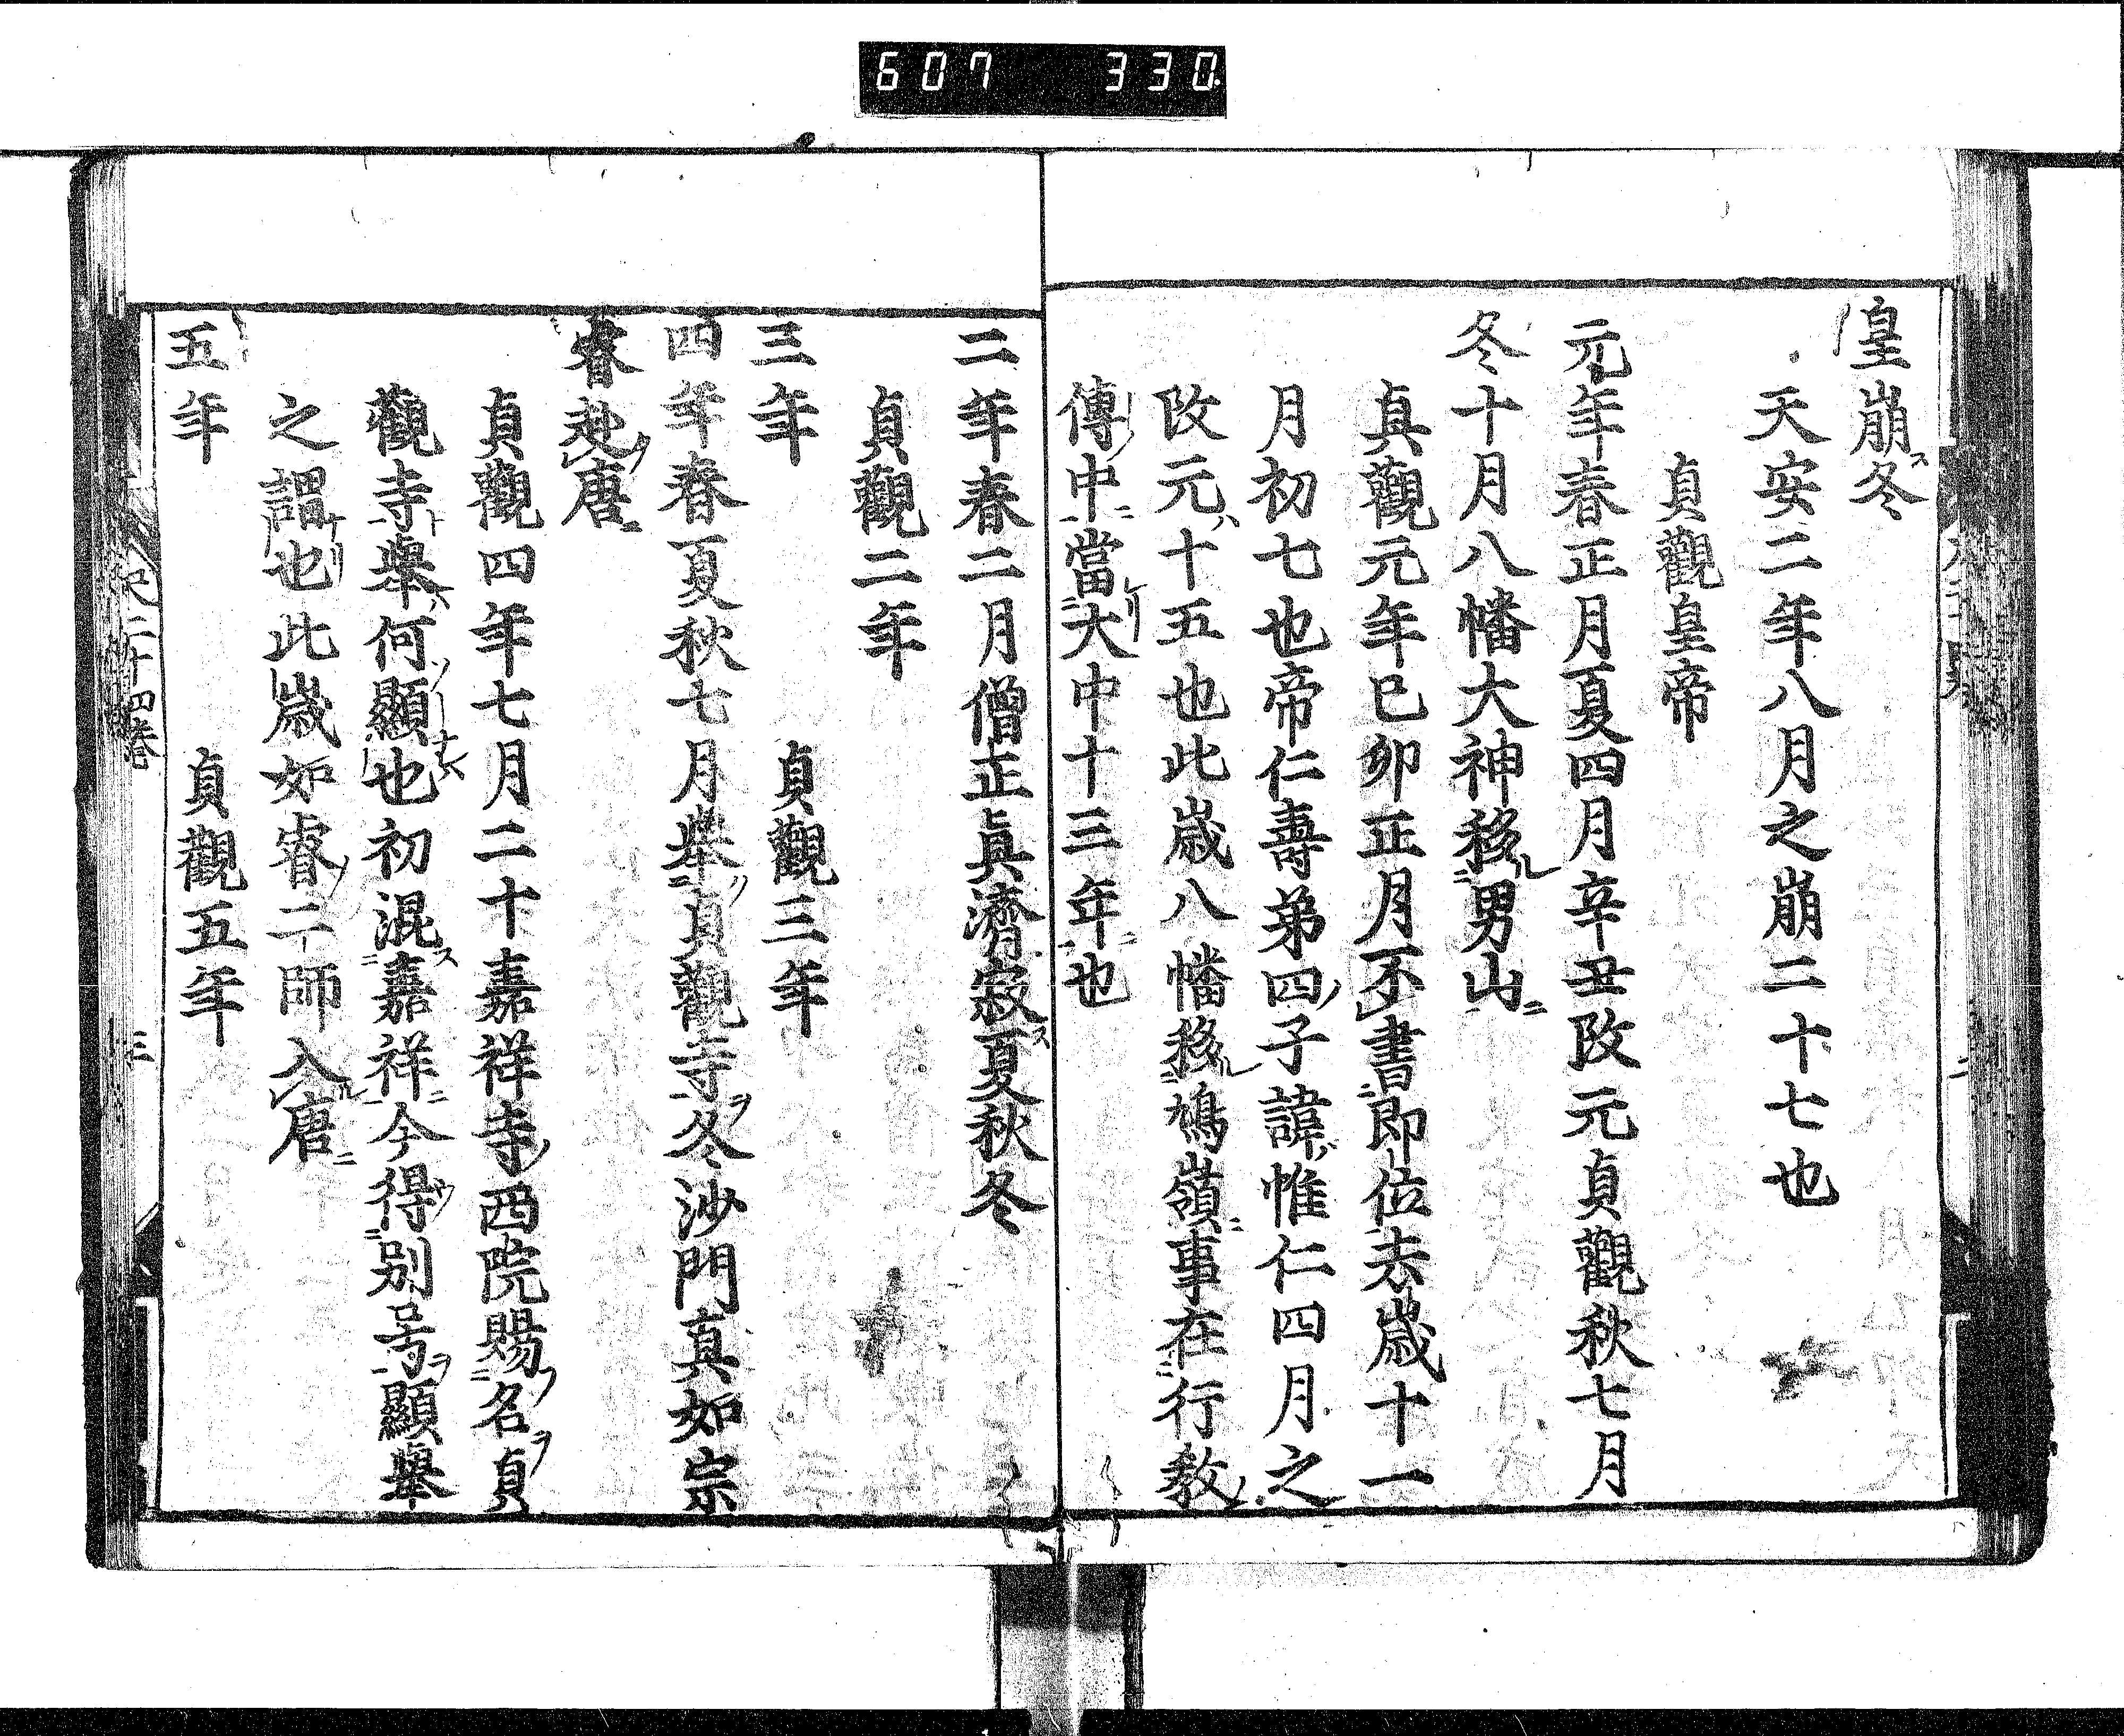 607 330
皇崩冬
天安二年八月之崩二十七也
貞觀皇帝
元年春正月夏四月辛丑改元貞觀秋七月
冬十月八幡大神移男山
真觀元年已卯正月不書即位去歳十一
月初七也帝仁壽弟四子諱惟仁四月之
改元十五也此歳八幡移鳩嶺事在行教
傳中當大中十三年也
二年春二月僧正眞濟寂夏秋冬
貞觀二年
三年 貞觀三年
四年春夏秋七月擧貞觀寺冬沙門真如宗
睿赴唐
貞觀四年七月二十嘉祥寺西院賜名貞
觀寺擧何顯也初混嘉祥今得別号顯擧
之謂也此歳如睿二師入唐
五年 貞觀五年
二十四卷 三